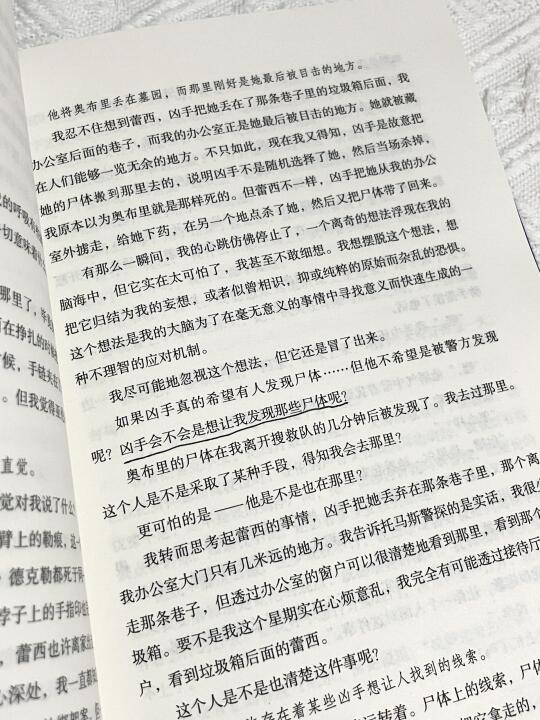 他将奥布里丢在墓园，而那里刚好是她最后被目击的地方。
我忍不住想到蕾西，凶手把她丢在了那条巷子里的垃圾箱后面，我
办公室后面的巷子，而我的办公室正是她最后被目击的地方。她就被藏
在人们能够一览无余的地方。不只如此，现在我又得知，凶手是故意把
她的尸体搬到那里去的，说明凶手不是随机选择了她，然后当场杀掉，
我原本以为奥布里就是那样死的。但蕾西不一样，凶手把她从我的办公
室外掳走，给她下药，在另一个地点杀了她，然后又把尸体带了回来。
有那么一瞬间，我的心跳仿佛停止了，一个离奇的想法浮现在我的
脑海中，但它实在太可怕了，我甚至不敢细想。我想摆脱这个想法，想
把它归结为我的妄想，或者似曾相识，抑或纯粹的原始而杂乱的恐惧。
这个想法是我的大脑为了在毫无意义的事情中寻找意义而快速生成的一
种不理智的应对机制。
我尽可能地忽视这个想法，但它还是冒了出来。
如果凶手真的希望有人发现尸体……但他不希望是被警方发现
呢？凶手会不会是想让我发现那些尸体呢？
奥布里的尸体在我离开搜救队的几分钟后被发现了。我去过那里。
这个人是不是采取了某种手段，得知我会去那里？
更可怕的是——他是不是也在那里？
我转而思考起蕾西的事情，凶手把她丢弃在那条巷子里，那个离
我办公室大门只有几米远的地方。我告诉托马斯警探的是实话，我很少
走那条巷子，但透过办公室的窗户可以很清楚地看到那里，看到那个
圾箱。要不是我这个星期实在心烦意乱，我完全有可能透过接待厅
户，看到垃圾箱后面的蕾西。
这个人是不是也清楚这件事呢？
存在着某些凶手想让人找到的线索。
运转着。尸体上的线索，尸体
那里了，
而在挣扎的
候，手链
。但我觉得
直觉。
觉对我说了什么
臂上的勒痕，这
德克勒都死于
脖子上的手指印也
，蕾西也许离家
心深处，我一直